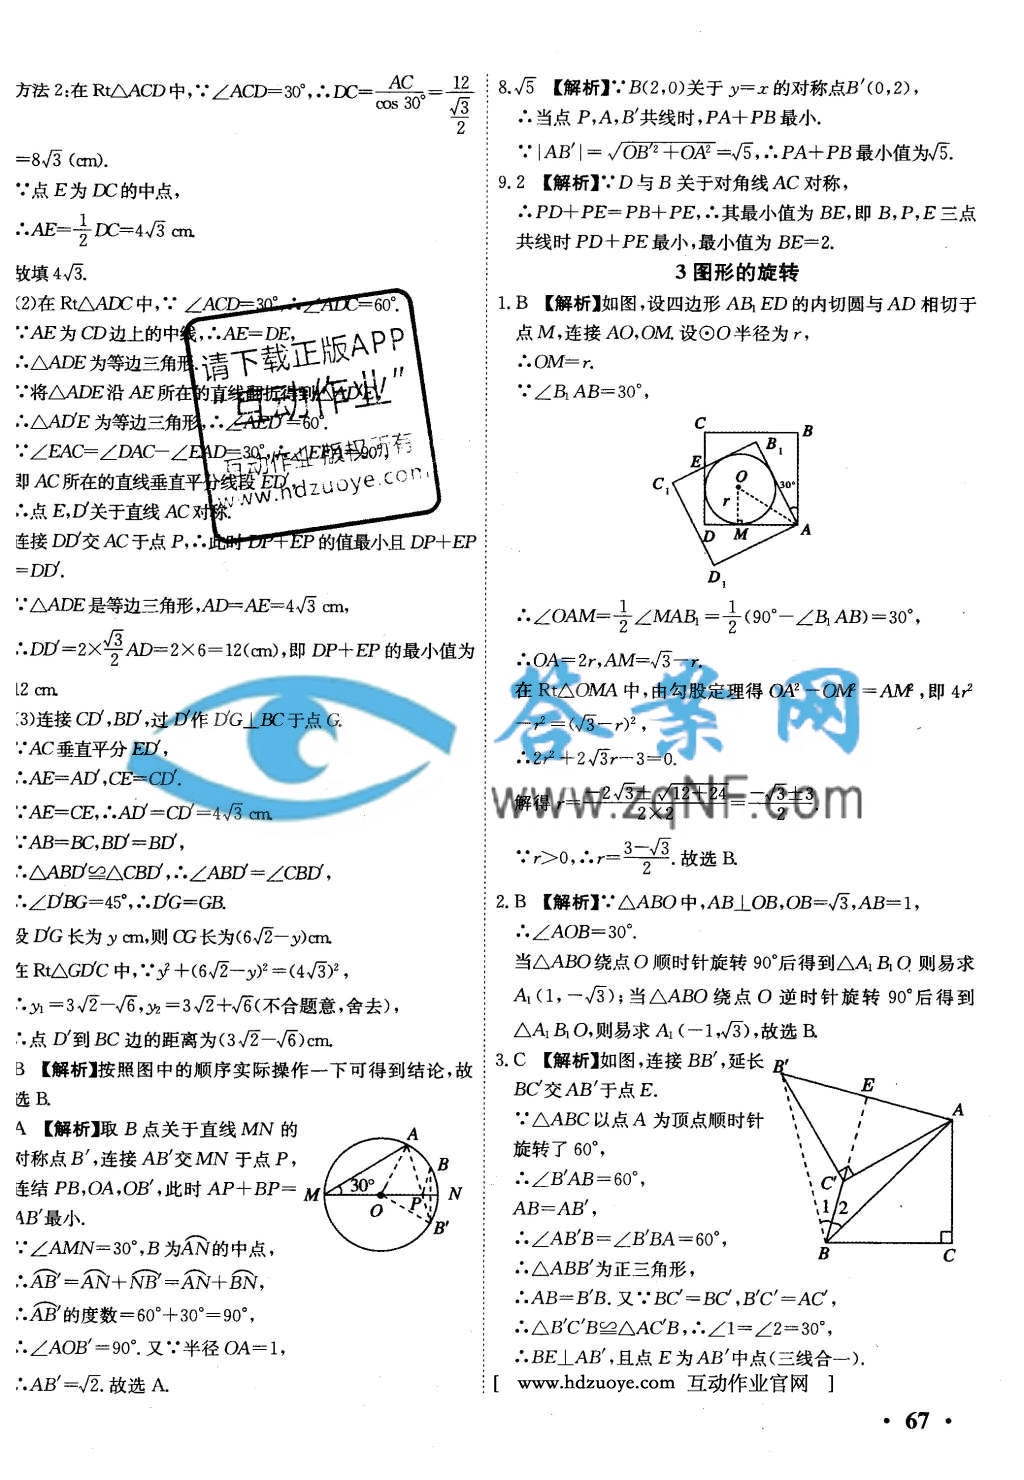 方法2:在Rt△ACD中,∵∠ACD=30°,∴DC=AC/cos 30°=12/(√3/2)
=8√3 (cm).
∵点E为DC的中点,
∴AE=1/2DC=4√3 cm.
故填4√3.
(2)在Rt△ADC中,∵∠ACD=30°,∴∠ADC=60°.
∵AE为CD边上的中线,∴AE=DE,
∴△ADE为等边三角形.
∵将△ADE沿AE所在的直线翻折得到△AD′E,
∴△AD′E为等边三角形,∴∠AED′=60°.
∵∠EAC=∠DAC-∠EAD=30°,∴∠EFA=90°,
即AC所在的直线垂直平分线段ED′,
∴点E,D′关于直线AC对称.
连接DD′交AC于点P,∴此时DP+EP的值最小且DP+EP
=DD′.
∵△ADE是等边三角形,AD=AE=4√3 cm,
∴DD′=2×√3/2AD=2×6=12(cm),即DP+EP的最小值为
12 cm.
(3)连接CD′,BD′,过D′作D′G⊥BC于点G.
∵AC垂直平分ED′,
∴AE=AD′,CE=CD′.
∵AE=CE,∴AD′=CD′=4√3 cm.
∵AB=BC,BD′=BD′,
∴△ABD′≌△CBD′,∴∠ABD′=∠CBD′,
∴∠D′BG=45°,∴D′G=GB.
设D′G长为y cm,则CG长为(6√2-y)cm.
在Rt△GD′C中,∵y²+(6√2-y)²=(4√3)²,
∴y₁=3√2-√6,y₂=3√2+√6(不合题意,舍去),
∴点D′到BC边的距离为(3√2-√6)cm.
B 【解析】按照图中的顺序实际操作一下可得到结论,故
选B.
A 【解析】取B点关于直线MN的
对称点B′,连接AB′交MN于点P,
连结PB,OA,OB′,此时AP+BP=
AB′最小.
∵∠AMN=30°,B为A͡N的中点,
∴A͡B′=A͡N+N͡B′=A͡N+B͡N,
∴A͡B′的度数=60°+30°=90°,
∴∠AOB′=90°.又∵半径OA=1,
∴AB′=√2.故选A.
A
B
M
30°
O
P
N
B′
8.√5 【解析】∵B(2,0)关于y=x的对称点B′(0,2),
∴当点P,A,B′共线时,PA+PB最小.
∵|AB′|=√(OB′²+OA²)=√5,∴PA+PB最小值为√5.
9.2 【解析】∵D与B关于对角线AC对称,
∴PD+PE=PB+PE,∴其最小值为BE,即B,P,E三点
共线时PD+PE最小,最小值为BE=2.
3 图形的旋转
1.B 【解析】如图,设四边形AB₁ED的内切圆与AD相切于
点M,连接AO,OM.设⊙O半径为r,
∴OM=r.
∵∠B₁AB=30°,
C
B
B₁
E
C₁
O
30°
r
D
M
A
D₁
∴∠OAM=1/2∠MAB₁=1/2(90°-∠B₁AB)=30°,
∴OA=2r,AM=√3-r.
在Rt△OMA中,由勾股定理得OA²-OM²=AM²,即4r²
-r²=(√3-r)²,
∴2r²+2√3r-3=0.
解得r=(-2√3±√(12+24))/(2×2)=(-√3±3)/2.
∵r>0,∴r=(3-√3)/2.故选B.
2.B 【解析】∵△ABO中,AB⊥OB,OB=√3,AB=1,
∴∠AOB=30°.
当△ABO绕点O顺时针旋转90°后得到△A₁B₁O,则易求
A₁(1,-√3);当△ABO绕点O逆时针旋转90°后得到
△A₁B₁O,则易求A₁(-1,√3),故选B.
3.C 【解析】如图,连接BB′,延长
BC′交AB′于点E.
∵△ABC以点A为顶点顺时针
旋转了60°,
∴∠B′AB=60°,
AB=AB′,
∴∠AB′B=∠B′BA=60°,
∴△ABB′为正三角形,
∴AB=B′B.又∵BC′=BC′,B′C′=AC′,
∴△B′C′B≌△AC′B,∴∠1=∠2=30°,
∴BE⊥AB′,且点E为AB′中点(三线合一).
B′
E
A
C′
1
2
B
C
[ www.hdzuoye.com 互动作业官网 ]
· 67 ·
请下载正版APP
“互动作业”
互动作业 版权所有
www.hdzuoye.com
答案网
www.zqNF.com